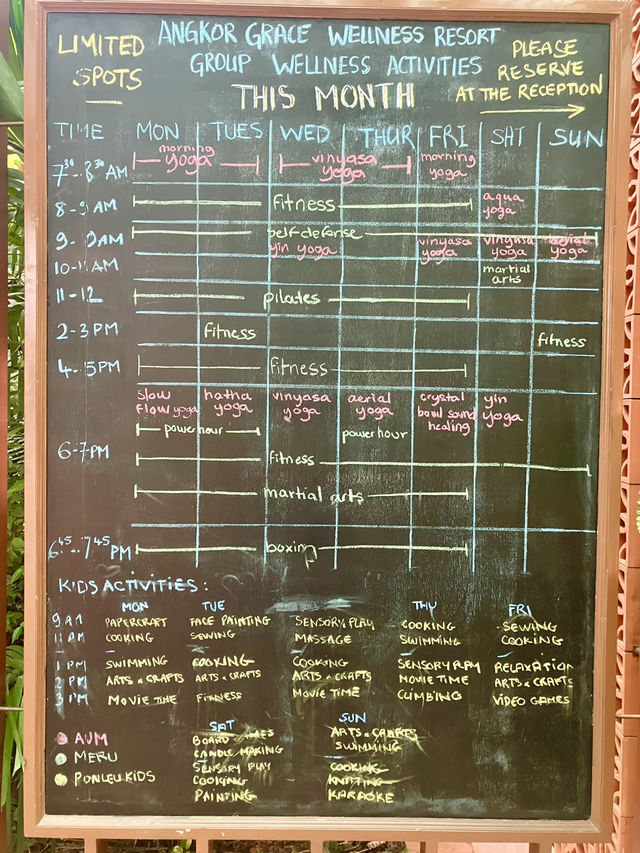 LIMITED SPOTS
ANGKOR GRACE WELLNESS RESORT
GROUP WELLNESS ACTIVITIES
THIS MONTH
PLEASE RESERVE AT THE RECEPTION
TIME MON TUES WED THUR FRI SAT SUN
7³⁰-8³⁰AM morning yoga vinyasa yoga morning yoga
8-9AM fitness aqua yoga
9-10AM self defense
yin yoga vinyasa yoga vinyasa yoga aerial yoga
10-11AM martial arts
11-12 pilates
2-3PM fitness fitness
4-5PM fitness
slow flow yoga hatha yoga vinyasa yoga aerial yoga crystal bowl sound healing yin yoga
power hour power hour
6-7PM fitness
martial arts
6⁴⁵-7⁴⁵PM boxing
KIDS ACTIVITIES:
MON TUE THU FRI
9AM PAPERCRAFT FACE PAINTING SENSORY PLAY COOKING SEWING
11AM COOKING SEWING MASSAGE SWIMMING COOKING
1PM SWIMMING COOKING COOKING SENSORY PLAY RELAXATION
2PM ARTS & CRAFTS ARTS & CRAFTS ARTS & CRAFTS MOVIE TIME ARTS & CRAFTS
3PM MOVIE TIME FITNESS MOVIE TIME CLIMBING VIDEO GAMES
SAT SUN
BOARD GAMES ARTS & CRAFTS
CANDLE MAKING SWIMMING
SENSORY PLAY COOKING
COOKING KNITTING
PAINTING KARAOKE
AUM
MERU
PONLEU KIDS